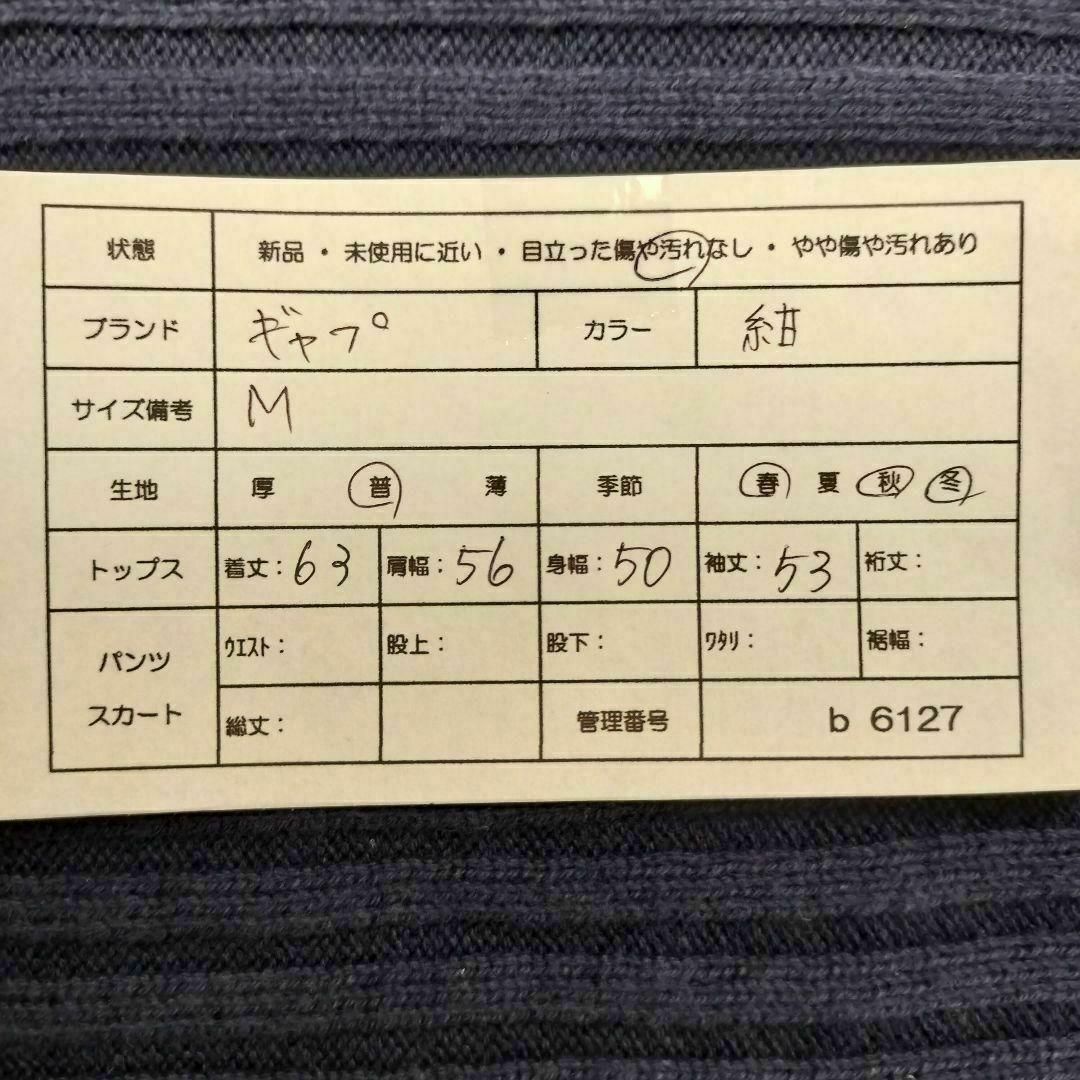 状態 新品 ・ 未使用に近い ・ 目立った傷や汚れなし ・ やや傷や汚れあり
ブランド ギャプ カラー 紺
サイズ備考 M
生地 厚 普 薄 季節 春 夏 秋 冬
トップス 着丈：63 肩幅：56 身幅：50 袖丈：53 裄丈：
パンツ ｳｴｽﾄ： 股上： 股下： ﾜﾀﾘ： 裾幅：
スカート 総丈： 管理番号 b 6127